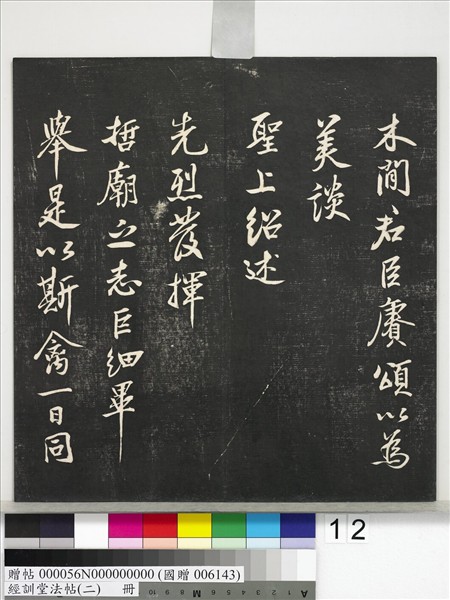 木間君臣賡頌以為
美談
聖上紹述
先烈發揮
哲廟之志巨細畢
舉是以斯禽一日同
12
贈帖 000056N000000000 (國贈 006143)
經訓堂法帖(二) 冊